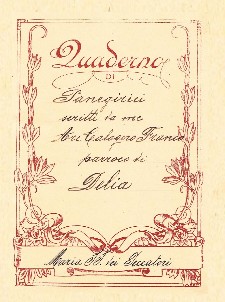 Quaderno
DI
Panegirici
scritti da me
Arc. Calogero Franco
parroco di
Delia
Maria SS. dei Peccatori